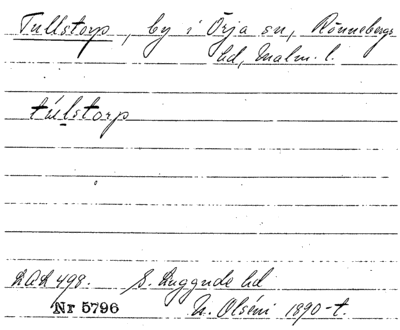 Tullstorp, by i Örja sn, Rönnebergs
hd, Malm. l.
túlstorp
LAL 498. S. Luggude hd
Nr 5796 N. Olséni 1890-t.